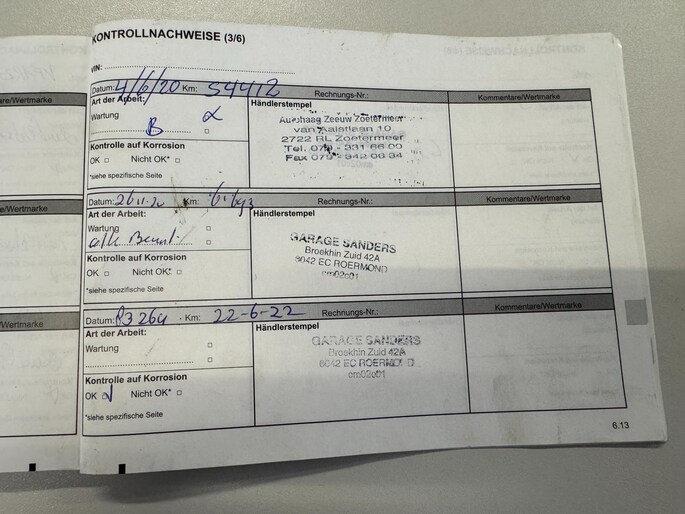 KONTROLLNACHWEISE (3/6)
VIN:
Datum: 4/6/20 Km: 54412 Rechnungs-Nr.: Kommentare/Wertmarke
Art der Arbeit: Händlerstempel
Wartung
B
Kontrolle auf Korrosion
OK Nicht OK*
*siehe spezifische Seite
Autohaag Zeeuw Zoetermeer
van Aalstlaan 10
2722 RL Zoetermeer
Tel. 079 - 331 66 00
Fax 079 - 342 00 34
are/Wertmarke
Datum: Km: Rechnungs-Nr.: Kommentare/Wertmarke
Art der Arbeit: Händlerstempel
Wartung
Kontrolle auf Korrosion
OK Nicht OK*
*siehe spezifische Seite
GARAGE SANDERS
Broekhin Zuid 42A
6042 EC ROERMOND
cm02c01
e/Wertmarke
Datum: 83264 Km: 22-6-22 Rechnungs-Nr.: Kommentare/Wertmarke
Art der Arbeit: Händlerstempel
Wartung
Kontrolle auf Korrosion
OK Nicht OK*
*siehe spezifische Seite
GARAGE SANDERS
Broekhin Zuid 42A
6042 EC ROERMOND
cm02c01
/Wertmarke
6.13